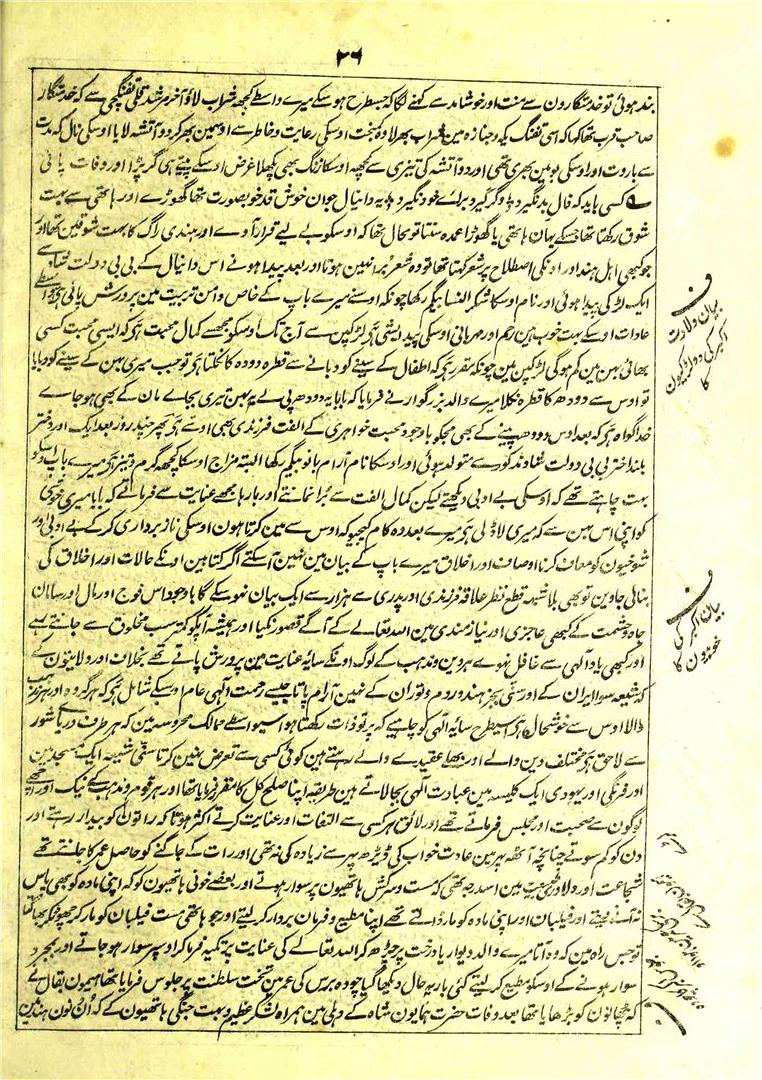 ۲۶
بند ہوئی تو خدمتگارون سے منت اور خوشامد سے کہنے لگا کہ جسطرح ہو سکے میرے واسطے کچھہ شراب لاؤ آخر مرشد قلی تفنگچی سے کہ خدمتگار
صاحب قرب تھا کہا کہ اسی تفنگ یکہ و جنازہ مین شراب بھر لا وہ کمبخت اوسکی رعایت و خاطر سے اوسمین بھر کر دو آتشہ لایا اوسکی نال کہ مدت
سے باروت اور اوسکی بو مین بھری تھی اور دو آتشہ کی تیزی سے کچھہ اوسکا زنگ بھی پگھلا غرض اوسکے پیتے ہی گر پڑا اور وفات پائی
کسی باید کہ فال بد نگیرد وگر گیرد براے خود نگیرد یہ دانیال جوان خوش قد خوبصورت تھا گھوڑے اور ہاتھی سے بہت
شوق رکھتا تھا جسکے یہان ہاتھی یا گھوڑا عمدہ سنتا تو محال تھا کہ اوسکو بے لیے قرار آوے اور ہندی راگ کا بہت شوقین تھا اور
جو کبھی اہل ہند اور اونکی اصطلاح پر شعر کہتا تھا تو وہ شعر برا نہین ہوتا اور بعد پیدا ہونے اس دانیال کے بی بی دولت شاد سے
ایک لڑکی پیدا ہوئی اور نام اوسکا شکر النسا بیگم رکھا چونکہ اوسنے میرے باپ کے خاص دامن تربیت مین پرورش پائی ہے اسواسطے
عادات اوسکے بہت خوب ہین رحم اور مہربانی اوسکی پیدایشی ہے لڑکپن سے آج تک اوسکو مجھسے کمال محبت ہے کہ ایسی محبت کسی
بھائی بہن مین کم ہوگی لڑکپن مین چونکہ مقرر ہے کہ اطفال کے سینے کو دبانے سے قطرہ دودہ کا نکلتا ہے تو جب میری بہن کے سینے کو دبایا
تو اوس سے دودھ کا قطرہ نکلا میرے والد بزرگوار نے فرمایا کہ بابا یہ دودھ پی لے یہ بہن تیری بجاے مان کے بھی ہو جاے
خدا گواہ ہے کہ بعد اوس دودھ پینے کے بھی مجکو باوجود محبت خواہری کے الفت فرزندی بھی اوسسے ہے پھر چند روز بعد ایک اور دختر
بلند اختر بی بی دولت شاد مذکور سے متولد ہوئی اور اوسکا نام آرام بانو بیگم رکھا البتہ مزاج اوسکا کچھہ گرم و تیز ہے میرے باپ اوسکو
بہت چاہتے تھے کہ اوسکی بے ادبی دیکھتے لیکن کمال الفت سے برا نمانتے اور بارہا مجھے عنایت سے فرماتے کہ بابا میری خوشی
کو اپنی اس بہن سے کہ میری لاڈلی ہے میرے بعد وہ کام کیجیو کہ اوس سے مین کرتا ہون اوسکی ناز برداری کر کے بے ادبی اور
شوخیون کو معاف کرنا اوصاف اور اخلاق میرے باپ کے بیان مین نہین آ سکتے اگر کتابین اونکے حالات اور اخلاق کی
بنائی جاوین تو بھی بلا شبہہ قطع نظر علاقہ فرزندی اور پدری سے ہزار سے ایک بیان نہو سکے گا باوجود اس فوج اور مال اور سامان
جاہ و حشمت کے کبھی عاجزی اور نیازمندی مین اللہ تعالے کے آگے قصور نکیا اور ہمیشہ آپکو کمتر سب مخلوق سے جانتے رہے
اور کبھی یاد آلہی سے غافل نہوے ہر دین و مذہب کے لوگ اونکے سایۂ عنایت مین پرورش پاتے تھے بخلاف اور ولایتون کے
کہ شیعہ سوا ایران کے اور سنی بجز ہند و روم و توران کے نہین آرام پاتا جیسے رحمت آلہی عام اوسکے شامل ہے کہ ہر گروہ اور ہر مذہب
والا اوس سے خوشحال ہے اسیطرح سایۂ آلہی کو چاہیے کہ پرتو ذات رکھتا ہو اسیواسطے ممالک محروسہ مین کہ ہر طرف دریاے شور
سے لاحق ہے مختلف دین والے اور بھلے عقیدے والے رہتے ہین کوئی کسی سے تعرض نہین کرتا سنی شیعہ ایک مسجد مین
اور فرنگی اور یہودی ایک کلیسہ مین عبادت آلہی بجا لاتے ہین طریقہ اپنا صلح کل کا مقرر فرمایا تھا اور ہر قوم و مذہب کے نیک اور اچھے
لوگون سے صحبت اور مجلس فرماتے تھے اور لائق ہر کسی سے التفات اور عنایت کرتے اکثر ہوتا کہ راتون کو بیدار رہتے اور
دن کو کم سوتے چنانچہ آٹھہ پہر مین عادت خواب کی ڈیڑھہ پہر سے زیادہ کی نہ تھی اور رات کے جاگنے کو حاصل عمر کا جانتے تھے
شجاعت اور دلاوری مین اسدرجہ تھی کہ مست و سرکش ہاتھیون پر سوار ہوتے اور بعضے خونی ہاتھیون کو کہ اپنی مادہ کو بھی پاس
نہ آنے دیتے اور فیلبان اور اپنی مادہ کو مار ڈالتے تھے اپنا مطیع و فرمان بردار کر لیتے اور جو ہاتھی مست فیلبان کو مار کر چھوٹکر بھاگتا
تو جس راہ مین کہ وہ آتا میرے والد دیوار یا درخت پر چڑھ کر اللہ تعالے کی عنایت پر تکیہ فرما کر اوسپر سوار ہو جاتے اور بمجرد
سوار ہونے کے اوسکو مطیع کر لیتے کئی بار یہ حال دیکھا گیا چودہ برس کی عمر مین تخت سلطنت پر جلوس فرمایا تھا ہیمون بقال نے
کہ پٹھانون کو بڑھایا تھا بعد وفات حضرت ہمایون شاہ کے دہلی مین ہمراہ لشکر عظیم و بہت جنگی ہاتھیون کے کہ اُن نون ہند مین
بیان ولادت
اکبر کی دو لڑکیون
کا
بیان اکبر کی
خوبیون کا